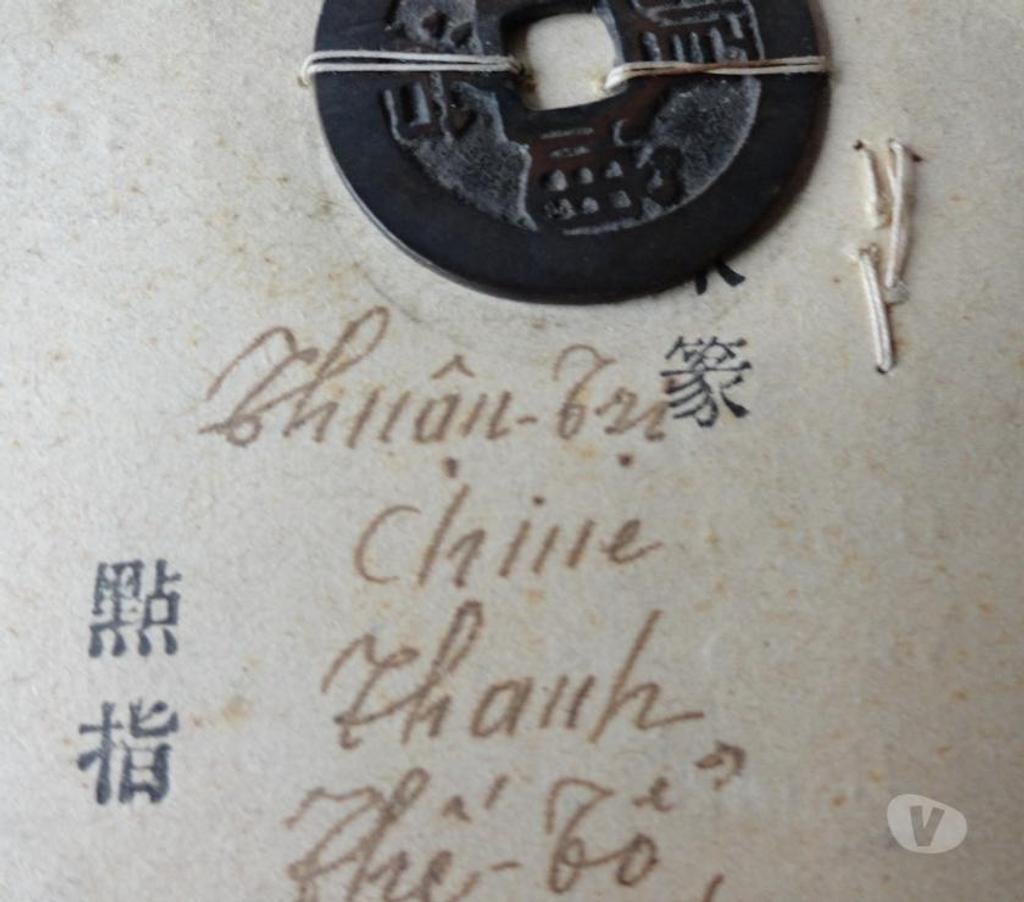 Thuận-Trị
篆
Chine
點
Thanh
指
Thế-Tổ